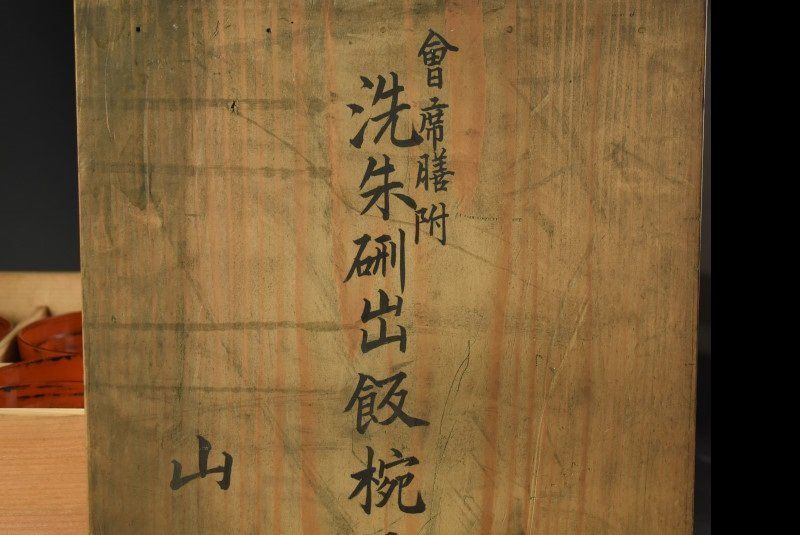 會席膳附
洗朱研出飯椀
山